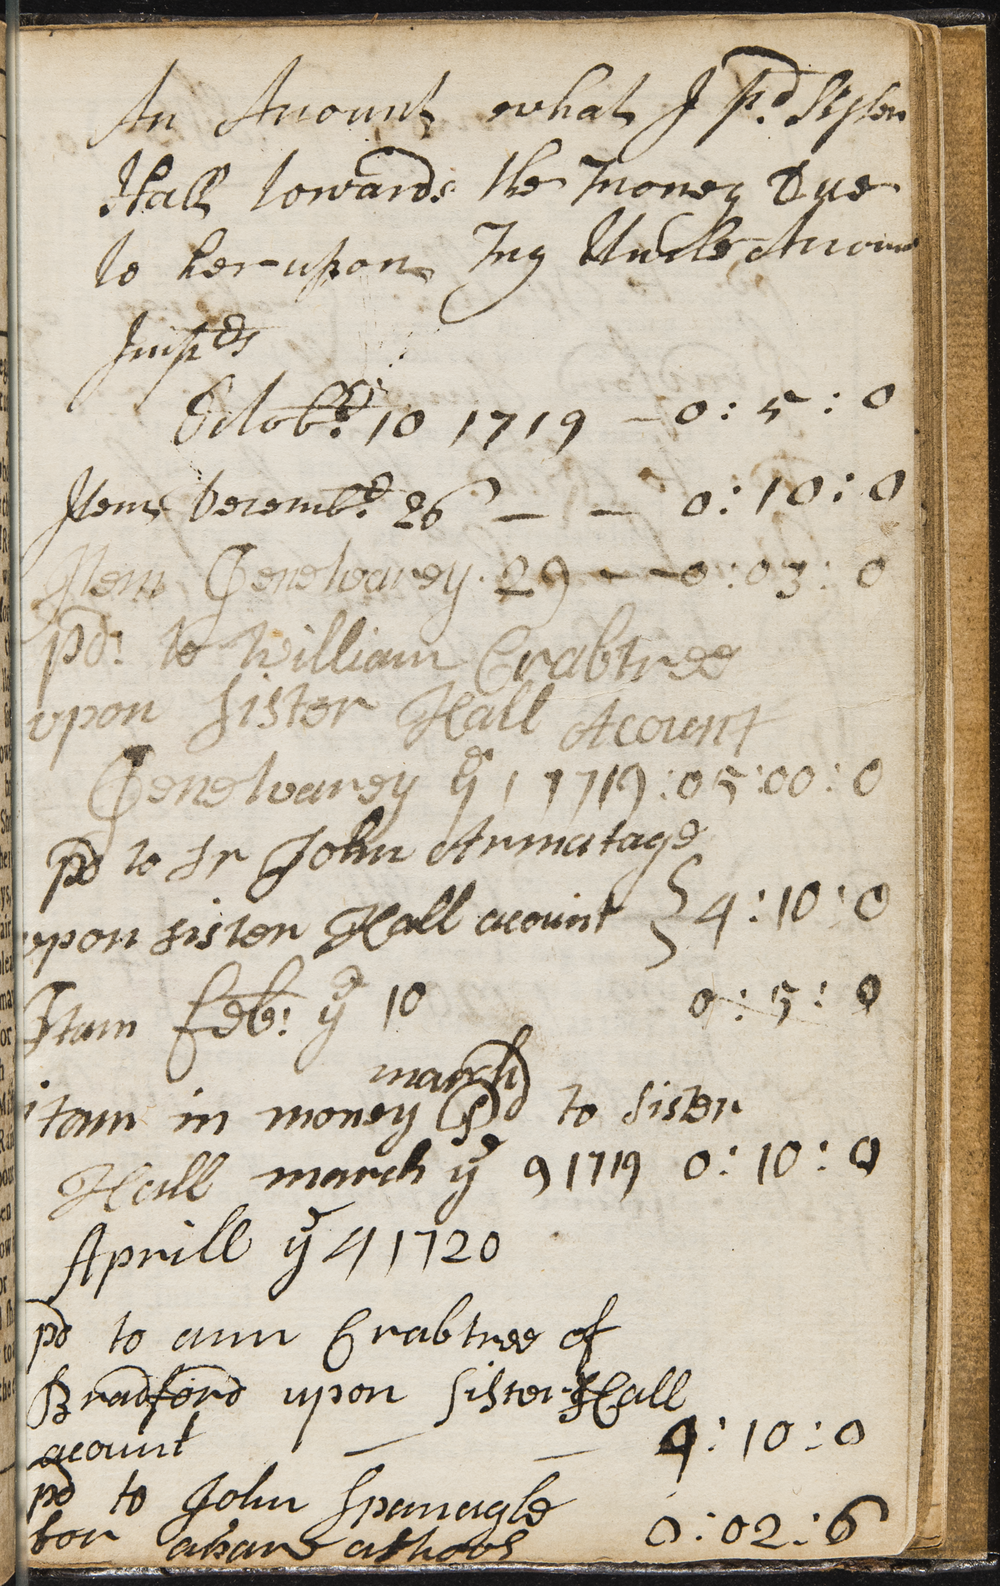 An Acount what I pd Sister
Hall towards the money Due
to her upon my Uncle Acount
Imprs
Octobr 10 1719 – 0 : 5 : 0
Item Decembr 26 — — 0 : 10 : 0
Item Genewarey . 29 — – 0 : 03 : 0
pd: to William Crabtree
upon sister Hall Acount
Genewarey ye 1 1719 : 05 : 00 : 0
pd to Sr John Armatage
upon sister Hall acount } 4 : 10 : 0
Itam feb: ye 10 0 : 5 : 0
march
itam in money pd to sister
Hall march ye 9 1719 0 : 10 : 0
Aprill ye 4 1720
pd to ann Crabtree of
Bradford upon sister Hall
acount — — 4 : 10 : 0
pd to John Spanagle
for 0 : 02 : 6